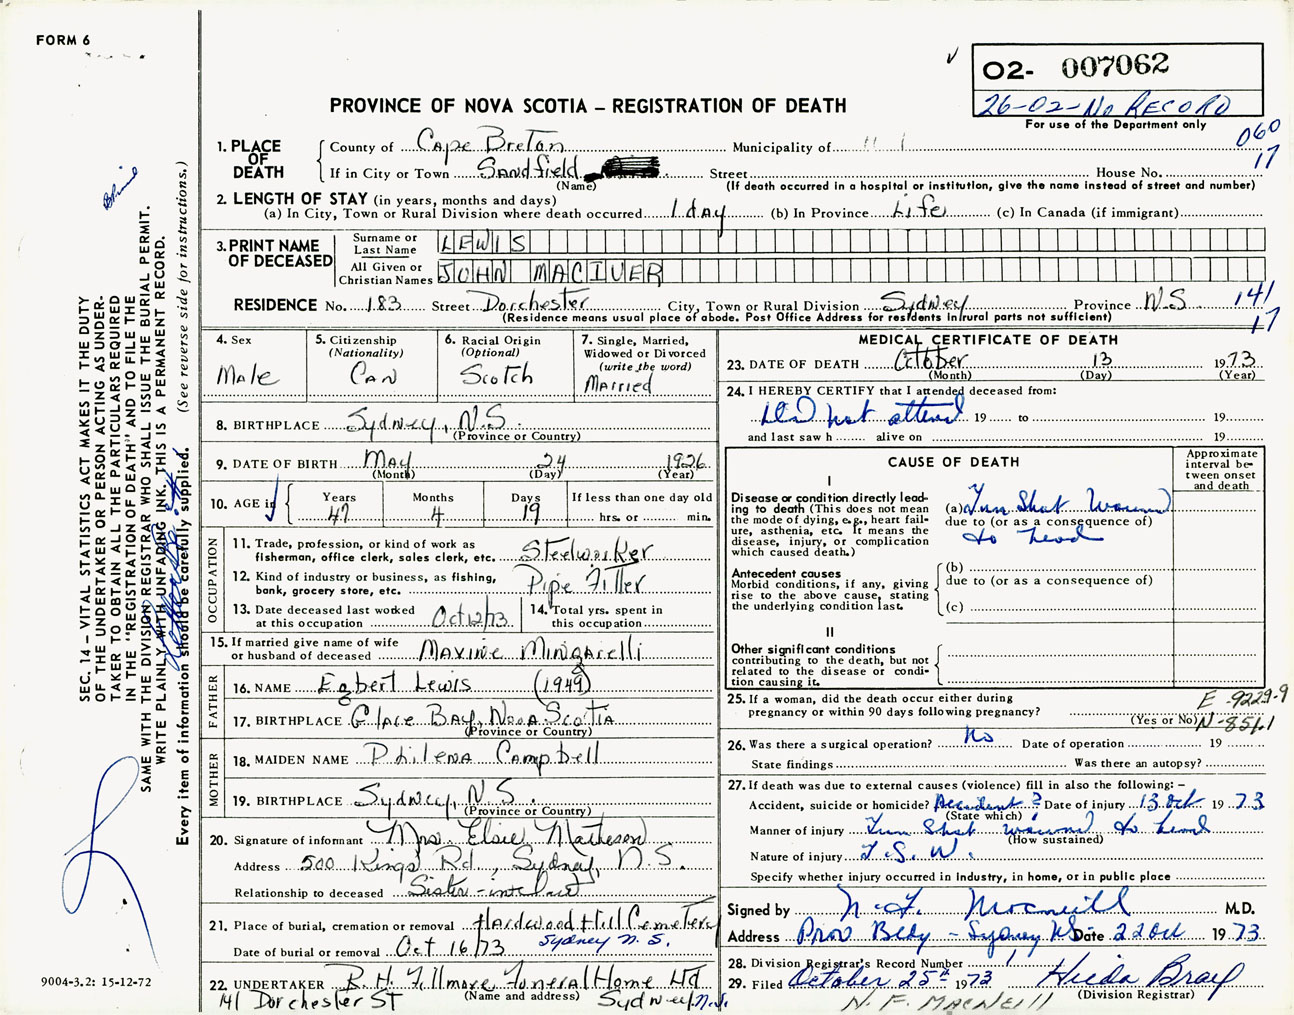 FORM 6
O2- 007062
26-02-No RECORD
For use of the Department only
060
17
PROVINCE OF NOVA SCOTIA – REGISTRATION OF DEATH
1. PLACE OF DEATH
County of Cape Breton Municipality of
If in City or Town Sandfield Street House No.
(Name) (If death occurred in a hospital or institution, give the name instead of street and number)
2. LENGTH OF STAY (in years, months and days)
(a) In City, Town or Rural Division where death occurred 1 day (b) In Province Life (c) In Canada (if immigrant)
3. PRINT NAME OF DECEASED
Surname or Last Name LEWIS
All Given or Christian Names JOHN MACIVER
RESIDENCE No. 183 Street Dorchester City, Town or Rural Division Sydney Province N.S.
(Residence means usual place of abode. Post Office Address for residents in rural parts not sufficient)
141
17
4. Sex
Male
5. Citizenship
(Nationality)
CAN
6. Racial Origin
(Optional)
Scotch
7. Single, Married, Widowed or Divorced
(write the word)
Married
8. BIRTHPLACE Sydney, N.S.
(Province or Country)
9. DATE OF BIRTH May 24 1926
(Month) (Day) (Year)
10. AGE in
Years Months Days If less than one day old
47 4 19 hrs. or min.
OCCUPATION
11. Trade, profession, or kind of work as fisherman, office clerk, sales clerk, etc. Steelworker
12. Kind of industry or business, as fishing, bank, grocery store, etc. Pipe Fitter
13. Date deceased last worked at this occupation Oct 12/73
14. Total yrs. spent in this occupation
15. If married give name of wife or husband of deceased Maxine Mingarelli
FATHER
16. NAME Egbert Lewis (1949)
17. BIRTHPLACE Glace Bay, Nova Scotia
(Province or Country)
MOTHER
18. MAIDEN NAME Philena Campbell
19. BIRTHPLACE Sydney, N.S.
(Province or Country)
20. Signature of informant Mrs. Elsie Matheson
Address 500 Kings Rd, Sydney, N.S.
Relationship to deceased Sister-in-law
21. Place of burial, cremation or removal Hardwood Hill Cemetery
Sydney N.S.
Date of burial or removal Oct 16/73
22. UNDERTAKER R.H. Fillmore Funeral Home Ltd
(Name and address)
141 Dorchester ST Sydney N.S.
MEDICAL CERTIFICATE OF DEATH
23. DATE OF DEATH October 13 1973
(Month) (Day) (Year)
24. I HEREBY CERTIFY that I attended deceased from:
Did not attend 19 to 19
and last saw h alive on 19
CAUSE OF DEATH
Approximate interval between onset and death
I
Disease or condition directly leading to death (This does not mean the mode of dying, e.g., heart failure, asthenia, etc. It means the disease, injury, or complication which caused death.)
(a) Gun Shot Wound
due to (or as a consequence of)
to head
Antecedent causes
Morbid conditions, if any, giving rise to the above cause, stating the underlying condition last.
(b)
due to (or as a consequence of)
(c)
II
Other significant conditions contributing to the death, but not related to the disease or condition causing it.
25. If a woman, did the death occur either during pregnancy or within 90 days following pregnancy?
(Yes or No)
E-9229-9
N-851.1
26. Was there a surgical operation? No Date of operation 19
State findings Was there an autopsy?
27. If death was due to external causes (violence) fill in also the following: –
Accident, suicide or homicide? Accident ? Date of injury 13 Oct 1973
(State which)
Manner of injury Gun Shot wound to head
(How sustained)
Nature of injury G.S.W.
Specify whether injury occurred in industry, in home, or in public place
Signed by N.F. Macneill M.D.
Address Prov Bldg - Sydney NS Date 22 Oct 1973
28. Division Registrar's Record Number 1
29. Filed October 25th 1973 Hilda Bray
(Division Registrar)
N. F. MACNEILL
SEC. 14 – VITAL STATISTICS ACT MAKES IT THE DUTY
OF THE UNDERTAKER OR PERSON ACTING AS UNDER-
TAKER TO OBTAIN ALL THE PARTICULARS REQUIRED
IN THE "REGISTRATION OF DEATH" AND TO FILE THE
SAME WITH THE DIVISION REGISTRAR WHO SHALL ISSUE THE BURIAL PERMIT.
WRITE PLAINLY WITH UNFADING INK. THIS IS A PERMANENT RECORD.
Every item of information should be carefully supplied. (See reverse side for instructions.)
9004-3.2: 15-12-72